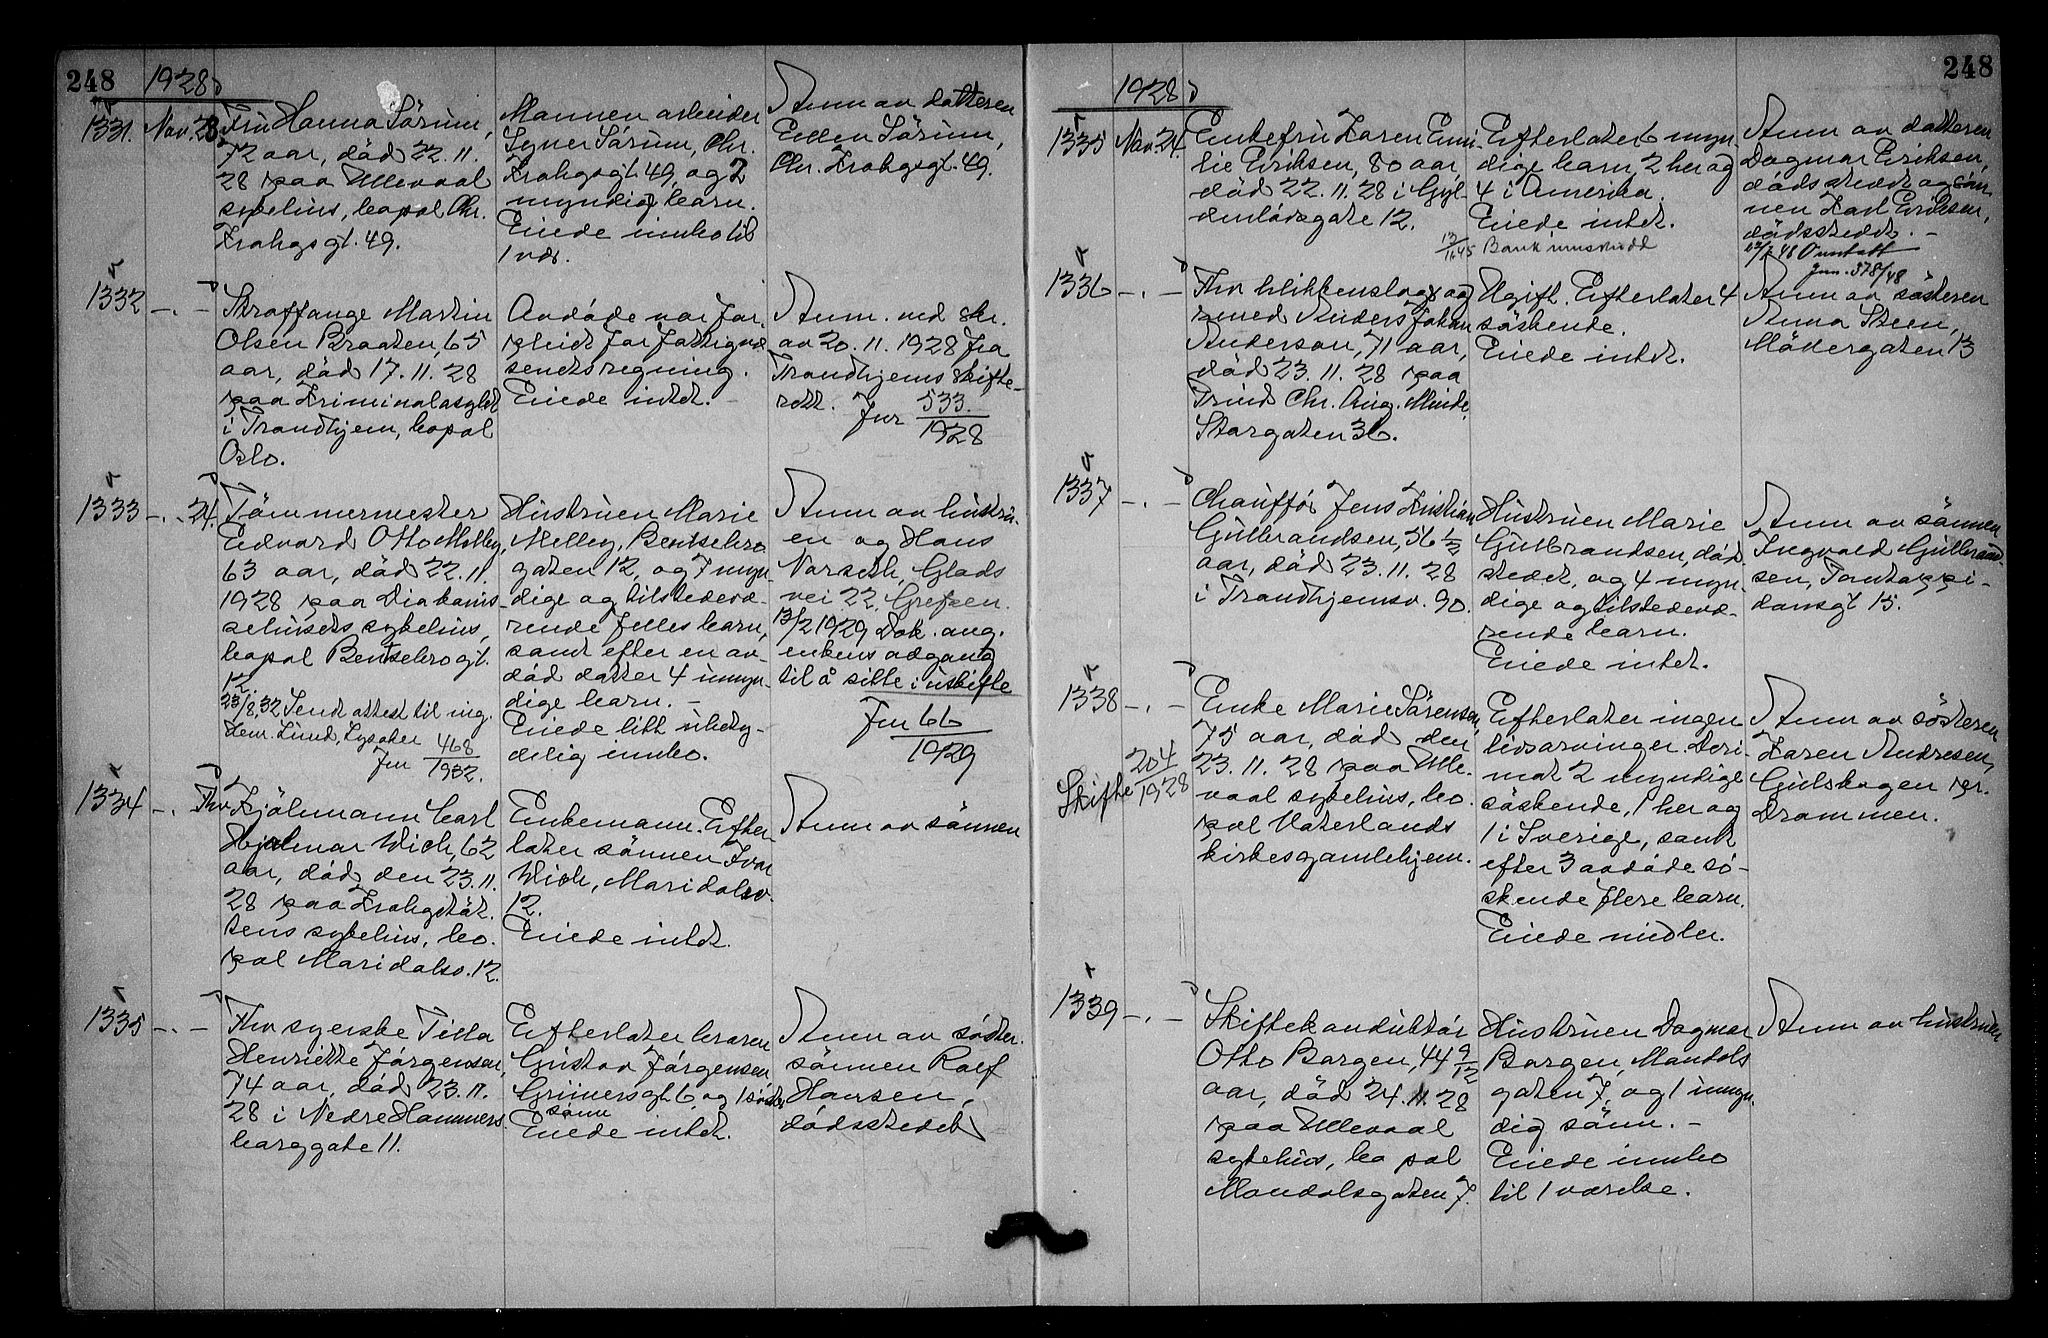 248
1928
1331. Nov. 23.
Fru Hanna Sörum,
72 aar, död 22. 11.
28 paa Ullevaal
sykehus, bopæl Chr.
Krohgsgt. 49.
Mannen arbeider
Syver Sörum, Chr.
Krohgsgt. 49, og 2
myndige barn.
Eiede innbo til
1 vær.
Anm av datteren
Ellen Sörum,
Chr. Krohgsgt. 49.
1332 -.-
Straffange Martin
Olsen Braaten, 65
aar, död 17. 11. 28
paa Kriminalasylet
i Trondhjem, bopæl
Oslo.
Avdöde var for-
pleiet for fattigvæ
senets regning.
Eiede intet. -
Anm. ved skr.
av 20. 11. 1928 fra
Trondhjems skifte-
rett. Jnr 533
1928
1333 -.- 24.
Tömmermester
Edvard Otto Melley,
63 aar, död 22. 11.
1928 paa Diakonis-
sehusets sykehus,
bopæl Bentsebrogt.
12.
23/8. 32 Sendt attest til ing.
Henr. Lund, Lysaker
Jnr 468
1932.
Hustruen Marie
Melley, Bentsebro
gaten 12, og 7 myn-
dige og tilstedevæ-
rende felles barn,
samt efter en av-
död datter 4 umyn-
dige barn. -
Eiede litt ubety-
delig innbo.
Anm av hustru-
en og Hans
Norseth, Glads
vei 22, Grefsen.
13/2 1929 Dok. ang.
enkens adgang
til å sitte i uskifte
Jnr 66
1929
1334 -.-
Fhv Kjölmann Carl
Hjalmar Wich, 62
aar, död den 23. 11.
28 paa Krohgstöt-
tens sykehus, bo-
pæl Maridalsv. 12.
Enkemann. Efter
later sönnen Ivar
Wich, Maridalsv.
12.
Eiede intet.
Anm av sönnen
1335 -.-
Fhv syerske Tilla
Henriette Jörgensen,
74 aar, död 23. 11.
28 i Nedre Hammers
borggate 11.
Efterlater broren
Gustav Jörgensen
Grünersgt 6, og 1 söster
sönn
Eiede intet.
Anm av söster-
sönnen Rolf
Hansen,
dödsstedet
248
1928
1335 Nov. 24.
Enkefru Karen Emi-
lie Eriksen, 80 aar,
död 22. 11. 28 i Gyl-
denlövsgate 12.
Efterlater 6 myn-
dige barn, 2 her og
4 i Amerika.
Eiede intet.
Bankinnskudd
Anm av datteren
Dagmar Eriksen,
dödsstedet og sön-
nen Karl Eriksen,
dödsstedet. -
Jnr. 378/48
1336 -.-
Fhv blikkenslager og
Anders Johan
Anderson, 71 aar,
död 23. 11. 28 paa
Prins Chr. Aug. Minde,
Storgaten 36.
Ugift. Efterlater 4
söskende.
Eiede intet.
Anm av sösteren
Anna Steen,
Möllergaten 13
1337 -.-
Chauffør Jens Kristian
Gulbrandsen, 56 1/2
aar, död 23. 11. 28
i Trondhjemsv. 90.
Hustruen Marie
Gulbrandsen, död
stedet, og 4 myn-
dige og tilstedevæ-
rende barn.
Eiede intet.
Anm av sönnen
Ingvald Gulbrand-
sen, Pontoppi-
dansgt 15.
1338 -.-
Skifte 204
1928
Enke Marie Sörensen
75 aar, död den
23. 11. 28 paa Ulle-
vaal sykehus, bo-
pæl Vaterlands
kirkes gamlehjem.
Efterlater ingen
livsarvinger. Deri-
mot 2 myndige
söskende, 1 her og
1 i Sverige, samt
efter 3 avdöde sö-
skende flere barn.
Eiede midler.
Anm av sösteren
Karen Andresen,
Gulskogen pr.
Drammen.
1339 -.-
Skiftekonduktör
Otto Borgen, 44 9/12
aar, död 24. 11. 28
paa Ullevaal
sykehus, bopæl
Mandalsgaten 7.
Hustruen Dagmar
Borgen, Mandals
gaten 7, og 1 umyn-
dig sönn. -
Eiede innbo
til 1 værelse.
Anm av hustruen